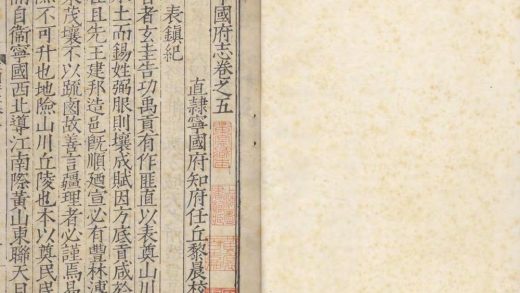 國府志卷之五
直隷寧國府知府任丘黎晨校
表鎮紀
者玄圭告功禹貢有作匪直以表奠山川
土而錫姓弼服則壤成賦因方底貢咸於
且先王建邦造邑旣順廼宣必有豐林
茂壤不以疏鹵故善言疆理者必謹焉易
險不可升也地險山川丘陵也不以奠民
自衞寧國西北導江南際黃山東聯天目